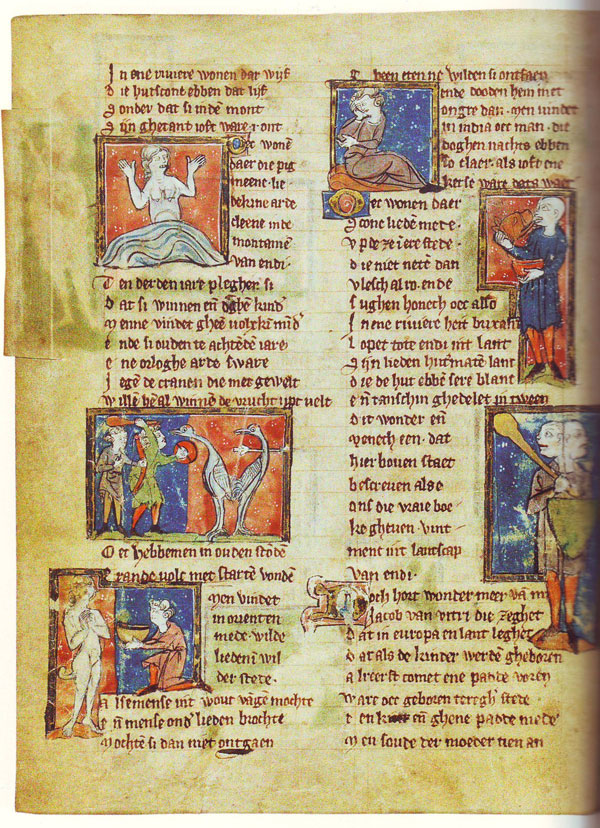 In ene riviere wonen dar wijf
Die hutscone ebben dat lijf
Sonder dat si inde mont
Sijn ghetant
Oec wonē
daer die pig
meene lie
dekine arde
cleene inde
montainē
van endi
Ten derden iare pleghen si
Dat si winnen eñ kint
Menne vindet gheē
Ende si ouden te achtendē iare
Ene orloghe arde sware
Iegē de cranen die met gewelt
wille winnē de vrucht upt velt
Oec hebbemen in ouden stōdē
Grande volc met starte vondē
Men vindet
in orienten
mede wilde
liedenī wil
der stede
Alsemense uit wout vāgē mochte
Eñ mense ond' lieden brochte
Mochtē si dan niet ontgaen
Gheen eten ne wilden si ontfaen
ende dooden hem met
ongre dan Men vindet
in india oec man die
doghen nachts ebben
so claer als ioft ene
kerse ware
Oec wonen daer
Scone liedē mede
up de zeē stede
die niet netē dan
vlesch al ro ende
sughen honech oec also
In ene riviere heit
Lopet tote endi int lant
Sijn lieden hutmatē lanc
Die de hut ebbē sere blanc
Eñ tanschin ghedelet in tween
Dit wonder eñ
venech een dat
hier boven staet
bescreven alse
ons die vraie boe
ke gheven vint
men uit lantscap
van endi
Noch hort wonder meer
Jacob van vitri die zeghet
Dat in europa en lant leghet
Dat als de kinder werdē gheboren
Alreerst comet ene padde voren
ware oec geboren stede
kint eñ ghene padde mede
Men soude der moeder tien an